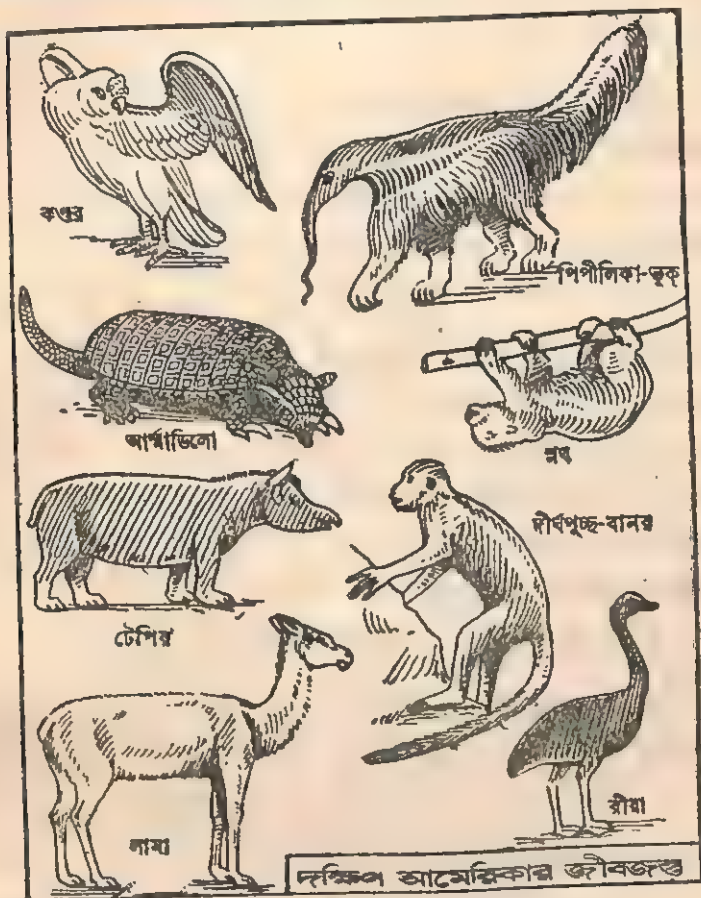 কণ্ডর
পিপীলিকা-ভুক্
আর্মাডিলো
শ্লথ
টেপির
দীর্ঘপুচ্ছ-বানর
লামা
রীয়া
দক্ষিণ আমেরিকার জীবজন্তু